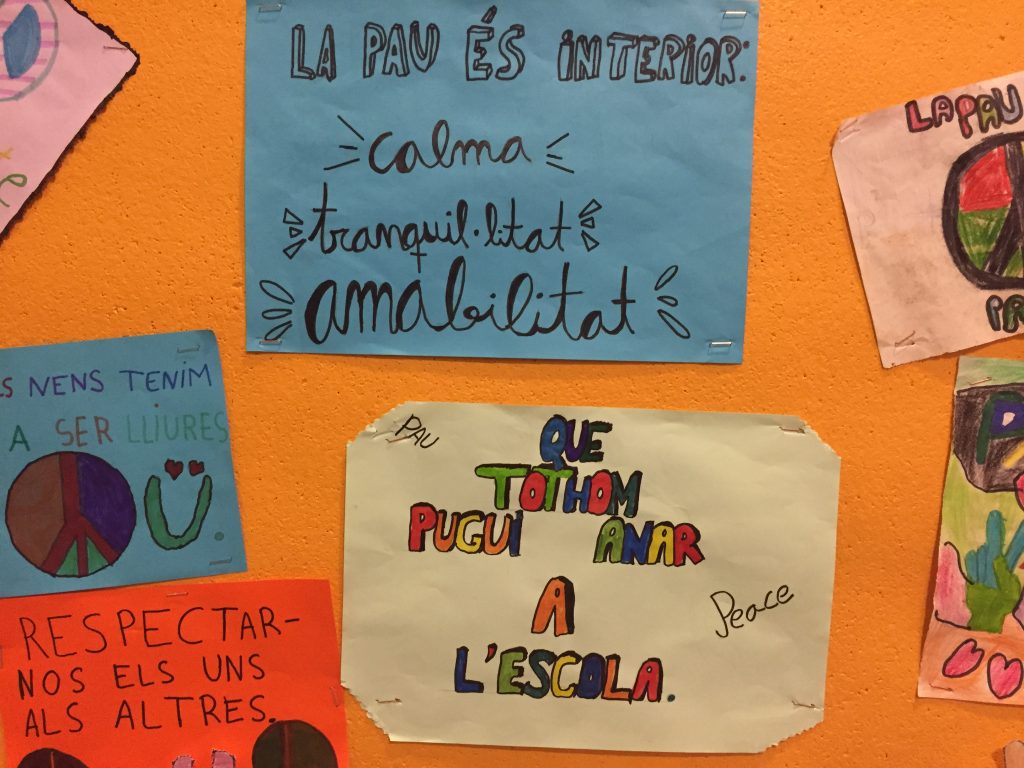 LA PAU ÉS INTERIOR:
calma
tranquil·litat
amabilitat
LA PAU
NENS TENIM
A SER LLIURES
.
Pau
QUE
TOTHOM
PUGUI ANAR
A
L'ESCOLA.
Peace
RESPECTAR-
NOS ELS UNS
ALS ALTRES.